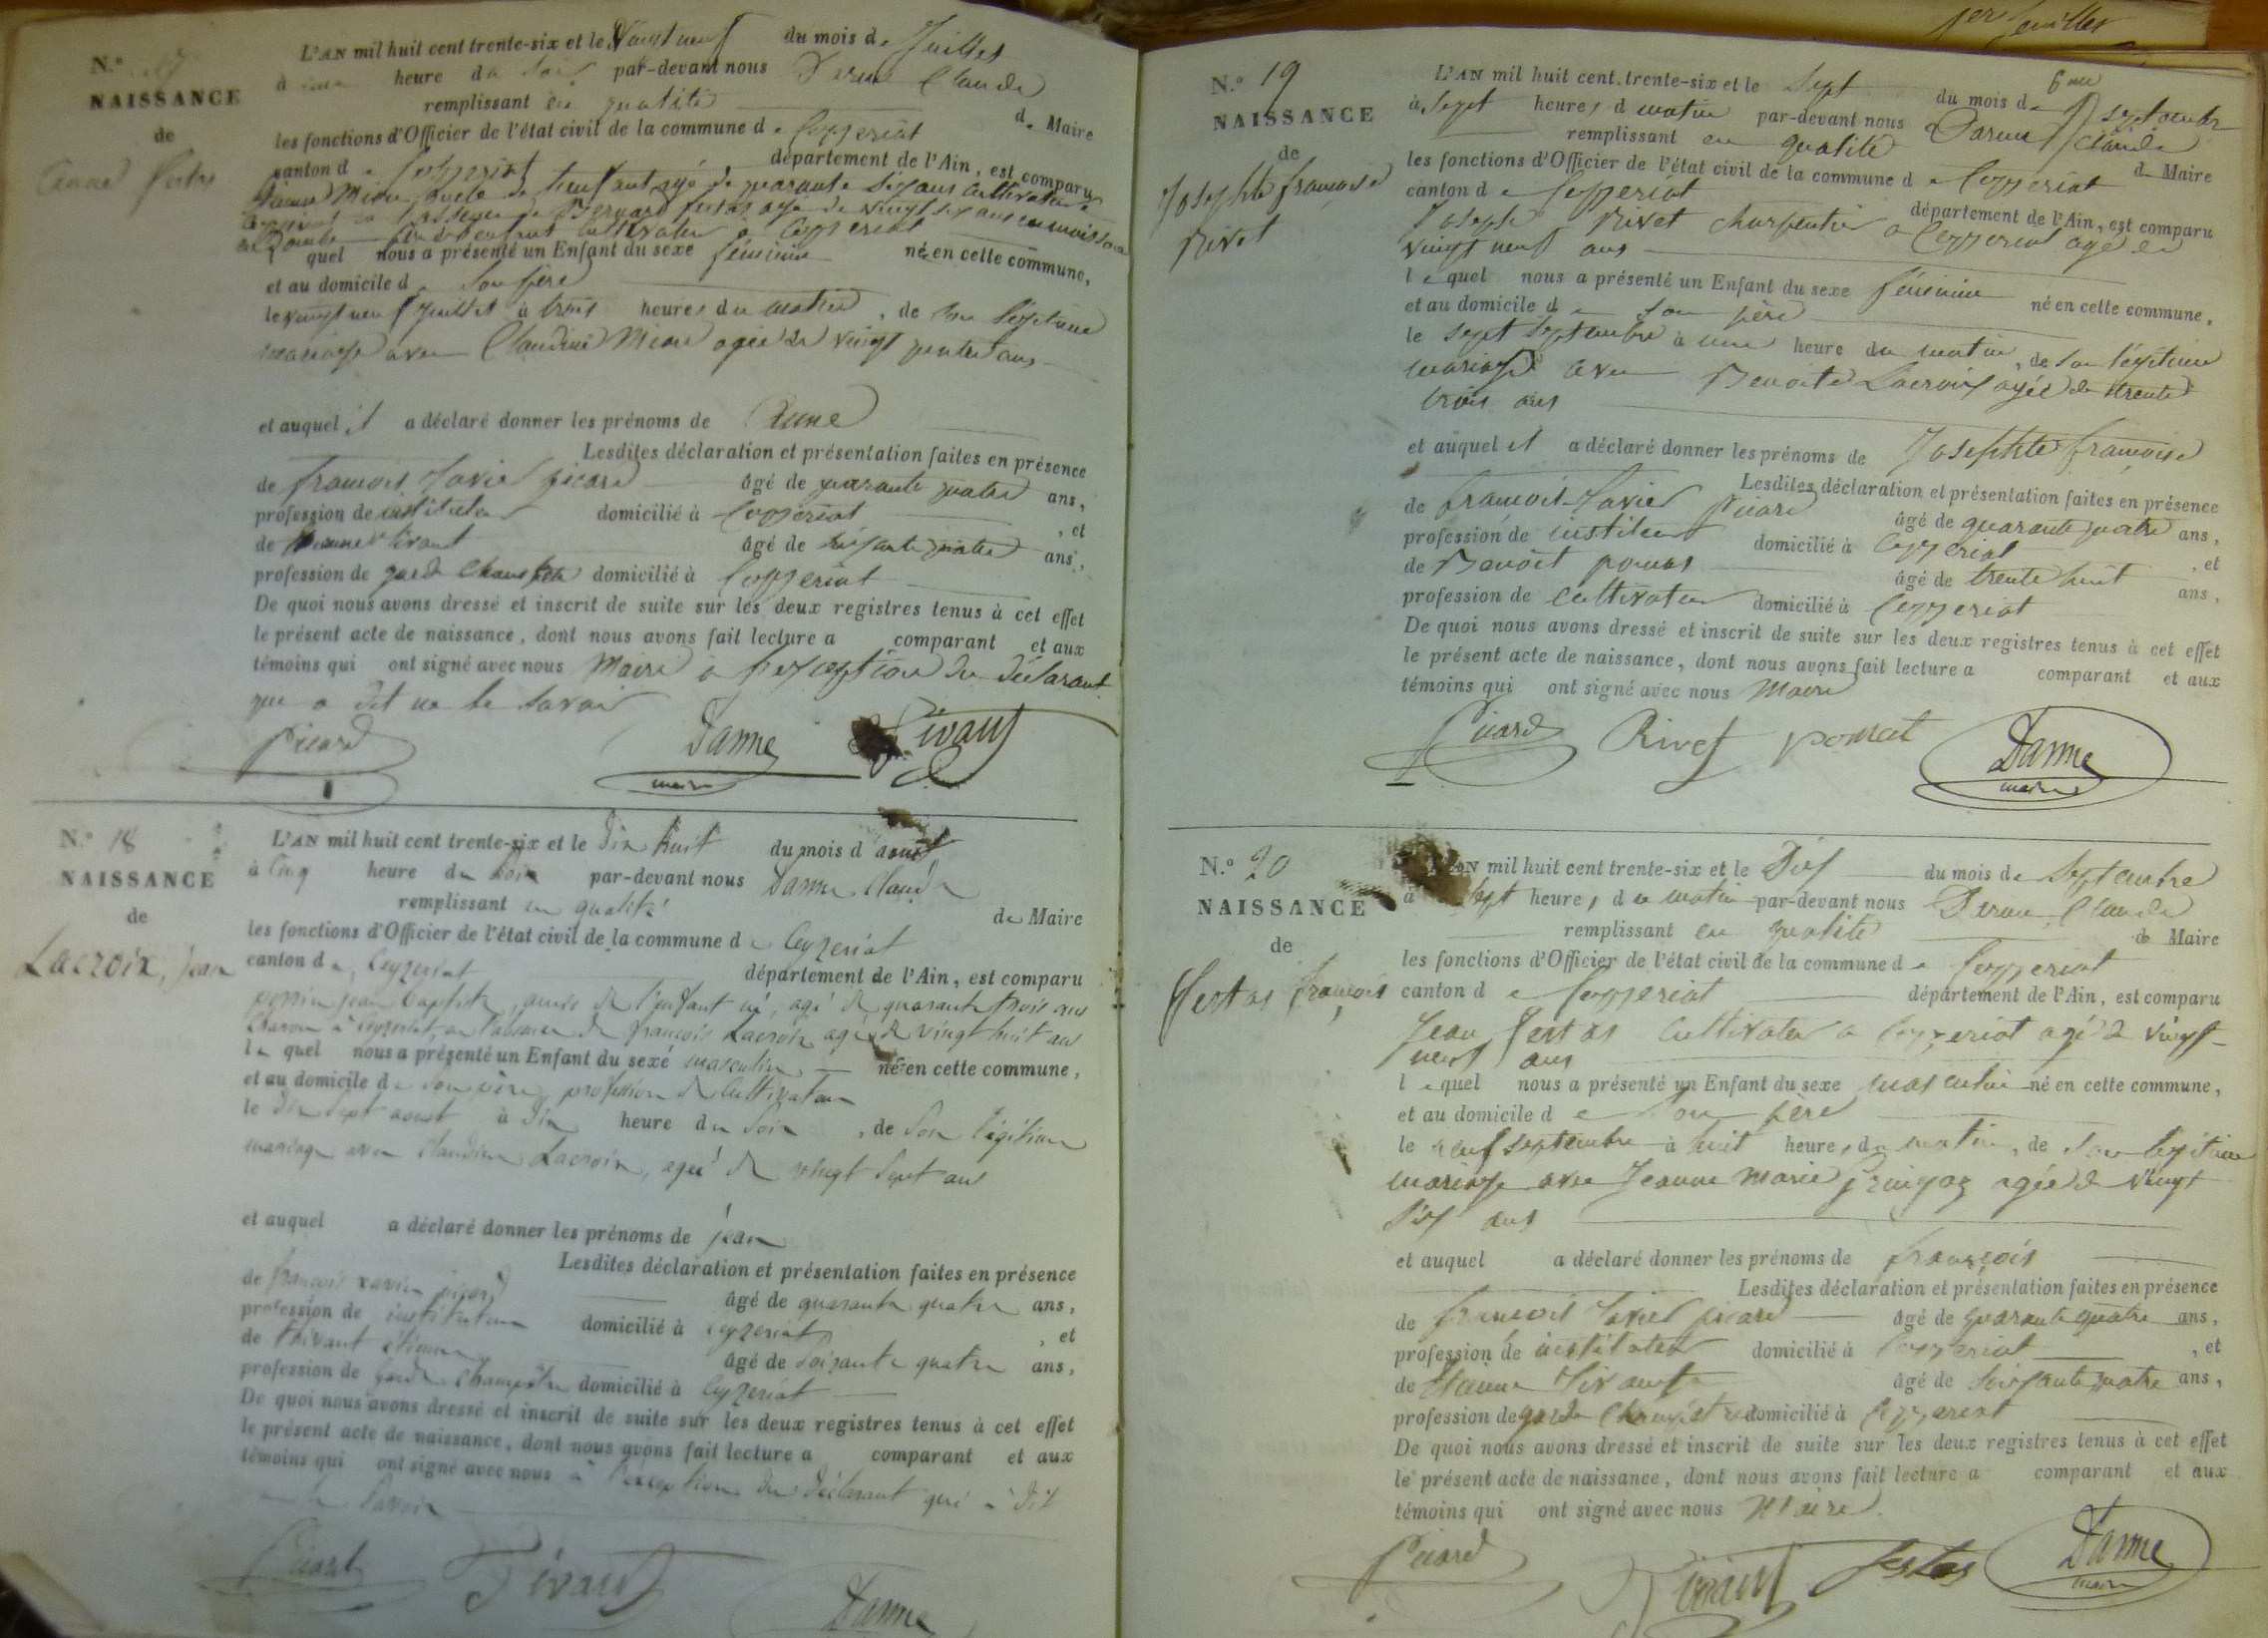 N.º
NAISSANCE
de
L'AN mil huit cent trente-six et le vingt neuf du mois de Juillet
à une heure du soir par-devant nous Darme Claude
remplissant en qualité de Maire
les fonctions d'Officier de l'état civil de la commune de Ceyzeriat
canton de Ceyzeriat département de l'Ain, est comparu
quel nous a présenté un Enfant du sexe féminin née en cette commune,
et au domicile de son père
le vingt neuf Juillet à trois heures du matin, de son légitime
mariage avec Claudine Mion agée de vingt quatre ans
et auquel il a déclaré donner les prénoms de Anne
Lesdites déclaration et présentation faites en présence
de françois Xavier picard âgé de quarante quatre ans,
profession de instituteur domicilié à Ceyzeriat, et
de tivant âgé de soixante quatre ans,
profession de garde Champetre domicilié à Ceyzeriat
De quoi nous avons dressé et inscrit de suite sur les deux registres tenus à cet effet
le présent acte de naissance, dont nous avons fait lecture a comparant et aux
témoins qui ont signé avec nous Maire a l'exception du déclarant
qui a dit ne le savoir
Picard Darme Tivant
maire
N.º 18
NAISSANCE
de
Lacroix, jean
L'AN mil huit cent trente-six et le dix huit du mois d'aout
à cinq heure du soir par-devant nous Darme Claude
remplissant en qualité de Maire
les fonctions d'Officier de l'état civil de la commune de Ceyzeriat
canton de Ceyzeriat département de l'Ain, est comparu
perrin jean baptiste, de l'enfant né, agé de quarante trois ans
à Ceyzeriat, en l'absence de françois Lacroix agé de vingt huit ans
le quel nous a présenté un Enfant du sexe masculin né en cette commune,
et au domicile de son père, profession de cultivateur
le dix sept aout à dix heure du soir, de son légitime
mariage avec Claudine Lacroix, agée de vingt sept ans
et auquel a déclaré donner les prénoms de jean
Lesdites déclaration et présentation faites en présence
de françois xavier picard âgé de quarante quatre ans,
profession de instituteur domicilié à Ceyzeriat, et
de thivant étienne âgé de soixante quatre ans,
profession de garde champetre domicilié à Ceyzeriat
De quoi nous avons dressé et inscrit de suite sur les deux registres tenus à cet effet
le présent acte de naissance, dont nous avons fait lecture a comparant et aux
témoins qui ont signé avec nous à l'exception du déclarant qui a dit
savoir
Picard Tivant Darme
1er feuillet
N.º 19
NAISSANCE
de
Josephte françoise
Rivet
L'AN mil huit cent trente-six et le Sept du mois de septembre
à Sept heures du matin par-devant nous Darme Claude
remplissant en qualité de Maire
les fonctions d'Officier de l'état civil de la commune de Ceyzeriat
canton de Ceyzeriat département de l'Ain, est comparu
Joseph Rivet charpentier a Ceyzeriat agé de
vingt neuf ans
lequel nous a présenté un Enfant du sexe féminin né en cette commune,
et au domicile de son père
le sept septembre à une heure du matin, de son légitime
mariage avec Benoite Lacroix agée de trente
trois ans
et auquel il a déclaré donner les prénoms de Josephte françoise
Lesdites déclaration et présentation faites en présence
de françois Xavier Picard âgé de quarante quatre ans,
profession de instituteur domicilié à Ceyzeriat, et
de Benoit pomat âgé de trente huit ans,
profession de cultivateur domicilié à Ceyzeriat
De quoi nous avons dressé et inscrit de suite sur les deux registres tenus à cet effet
le présent acte de naissance, dont nous avons fait lecture a comparant et aux
témoins qui ont signé avec nous Maire
Picard Rivet pomat Darme
maire
N.º 20
NAISSANCE
de
françois
L'AN mil huit cent trente-six et le Dix du mois de Septembre
à sept heures du matin par-devant nous Darme Claude
remplissant en qualité de Maire
les fonctions d'Officier de l'état civil de la commune de Ceyzeriat
canton de Ceyzeriat département de l'Ain, est comparu
Jean festas Cultivateur a Ceyzeriat agé de vingt
neuf ans
lequel nous a présenté un Enfant du sexe masculin né en cette commune,
et au domicile de son père
le neuf septembre à huit heures du matin, de son légitime
mariage avec Jeanne Marie agée de vingt
six ans
et auquel a déclaré donner les prénoms de françois
Lesdites déclaration et présentation faites en présence
de françois Xavier picard âgé de quarante quatre ans,
profession de instituteur domicilié à Ceyzeriat, et
de Etienne Tivant âgé de soixante quatre ans,
profession de garde Champêtre domicilié à Ceyzeriat
De quoi nous avons dressé et inscrit de suite sur les deux registres tenus à cet effet
le présent acte de naissance, dont nous avons fait lecture a comparant et aux
témoins qui ont signé avec nous Maire
Picard Tivant festas Darme
maire